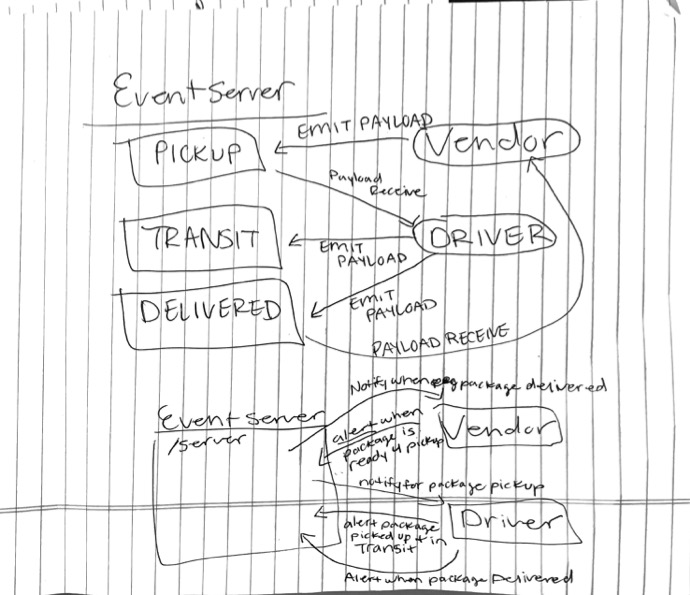 Event Server
EMIT PAYLOAD
Vendor
PICKUP
Payload
Receive
TRANSIT
DRIVER
EMIT
PAYLOAD
DELIVERED
EMIT
PAYLOAD
PAYLOAD RECEIVE
Notify when package delivered
Event server
/server
alert when
package is
ready 4 pickup
Vendor
notify for package pickup
Driver
alert package
picked up + in
Transit
Alert when package Delivered